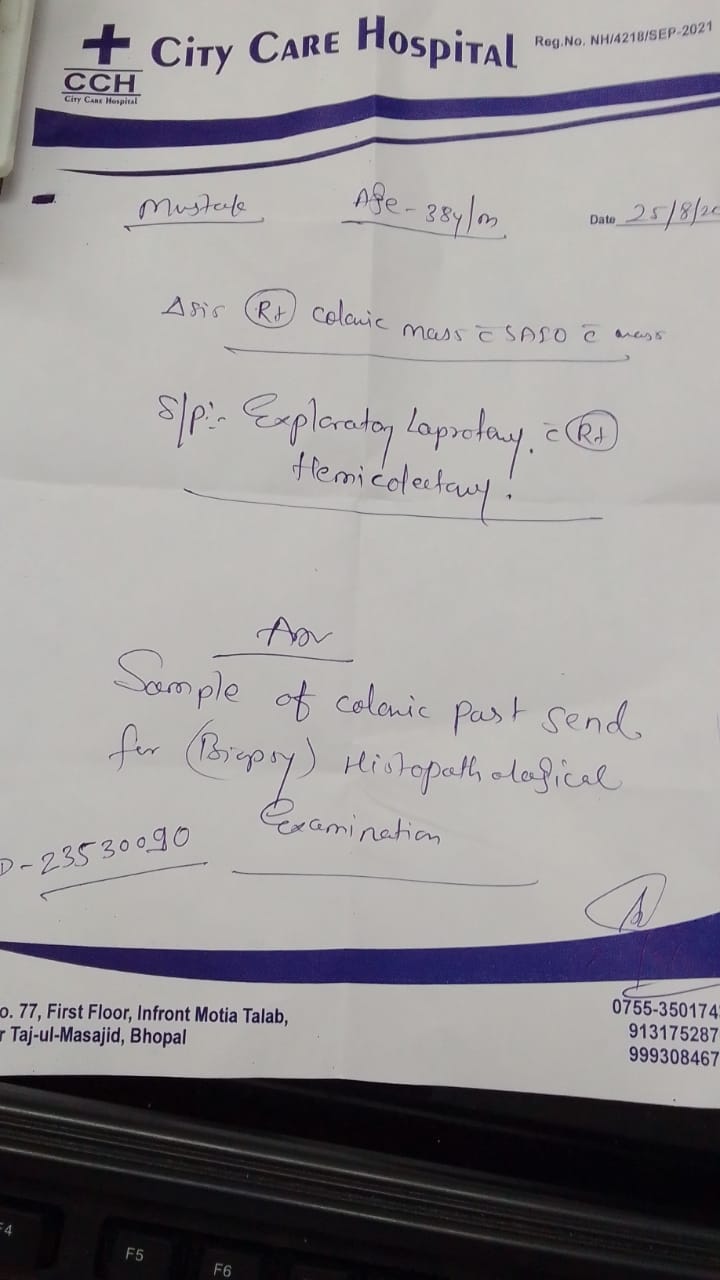 CITY CARE HOSPITAL
Reg.No. NH/4218/SEP-2021
CCH
City Care Hospital
Age - 38y/m
Date 25/8/20
Rt colonic mass c̄ SAIO c̄ mass
S/p:- Exploratory Laprotomy. c̄ Rt
Hemicolectomy.
Adv
Sample of colonic past send
for (Biopsy) Histopathological
Examination
D-23530090
o. 77, First Floor, Infront Motia Talab,
r Taj-ul-Masajid, Bhopal
0755-350174
913175287
999308467
F4
F5
F6